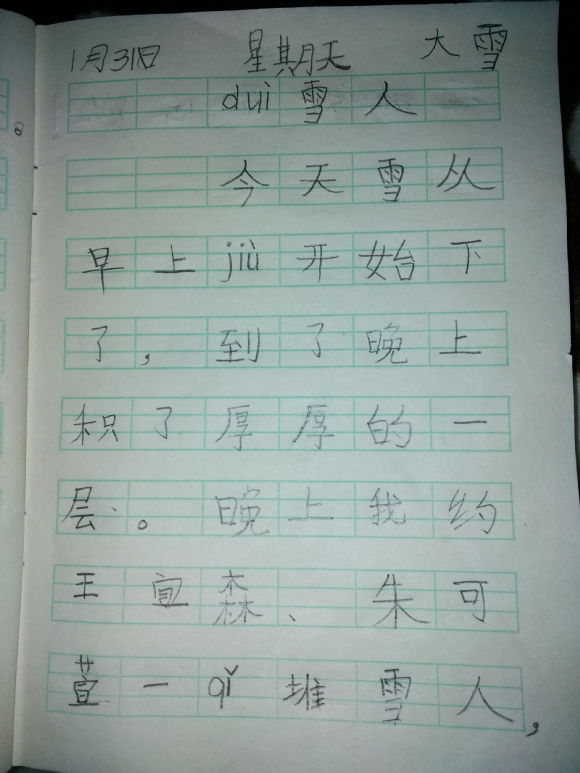 1月31日 星期天 大雪
duì雪人
今天雪从
早上jiù开始下
了,到了晚上
积了厚厚的一
层。晚上我约
王宜森、朱可
萱一qǐ堆雪人,